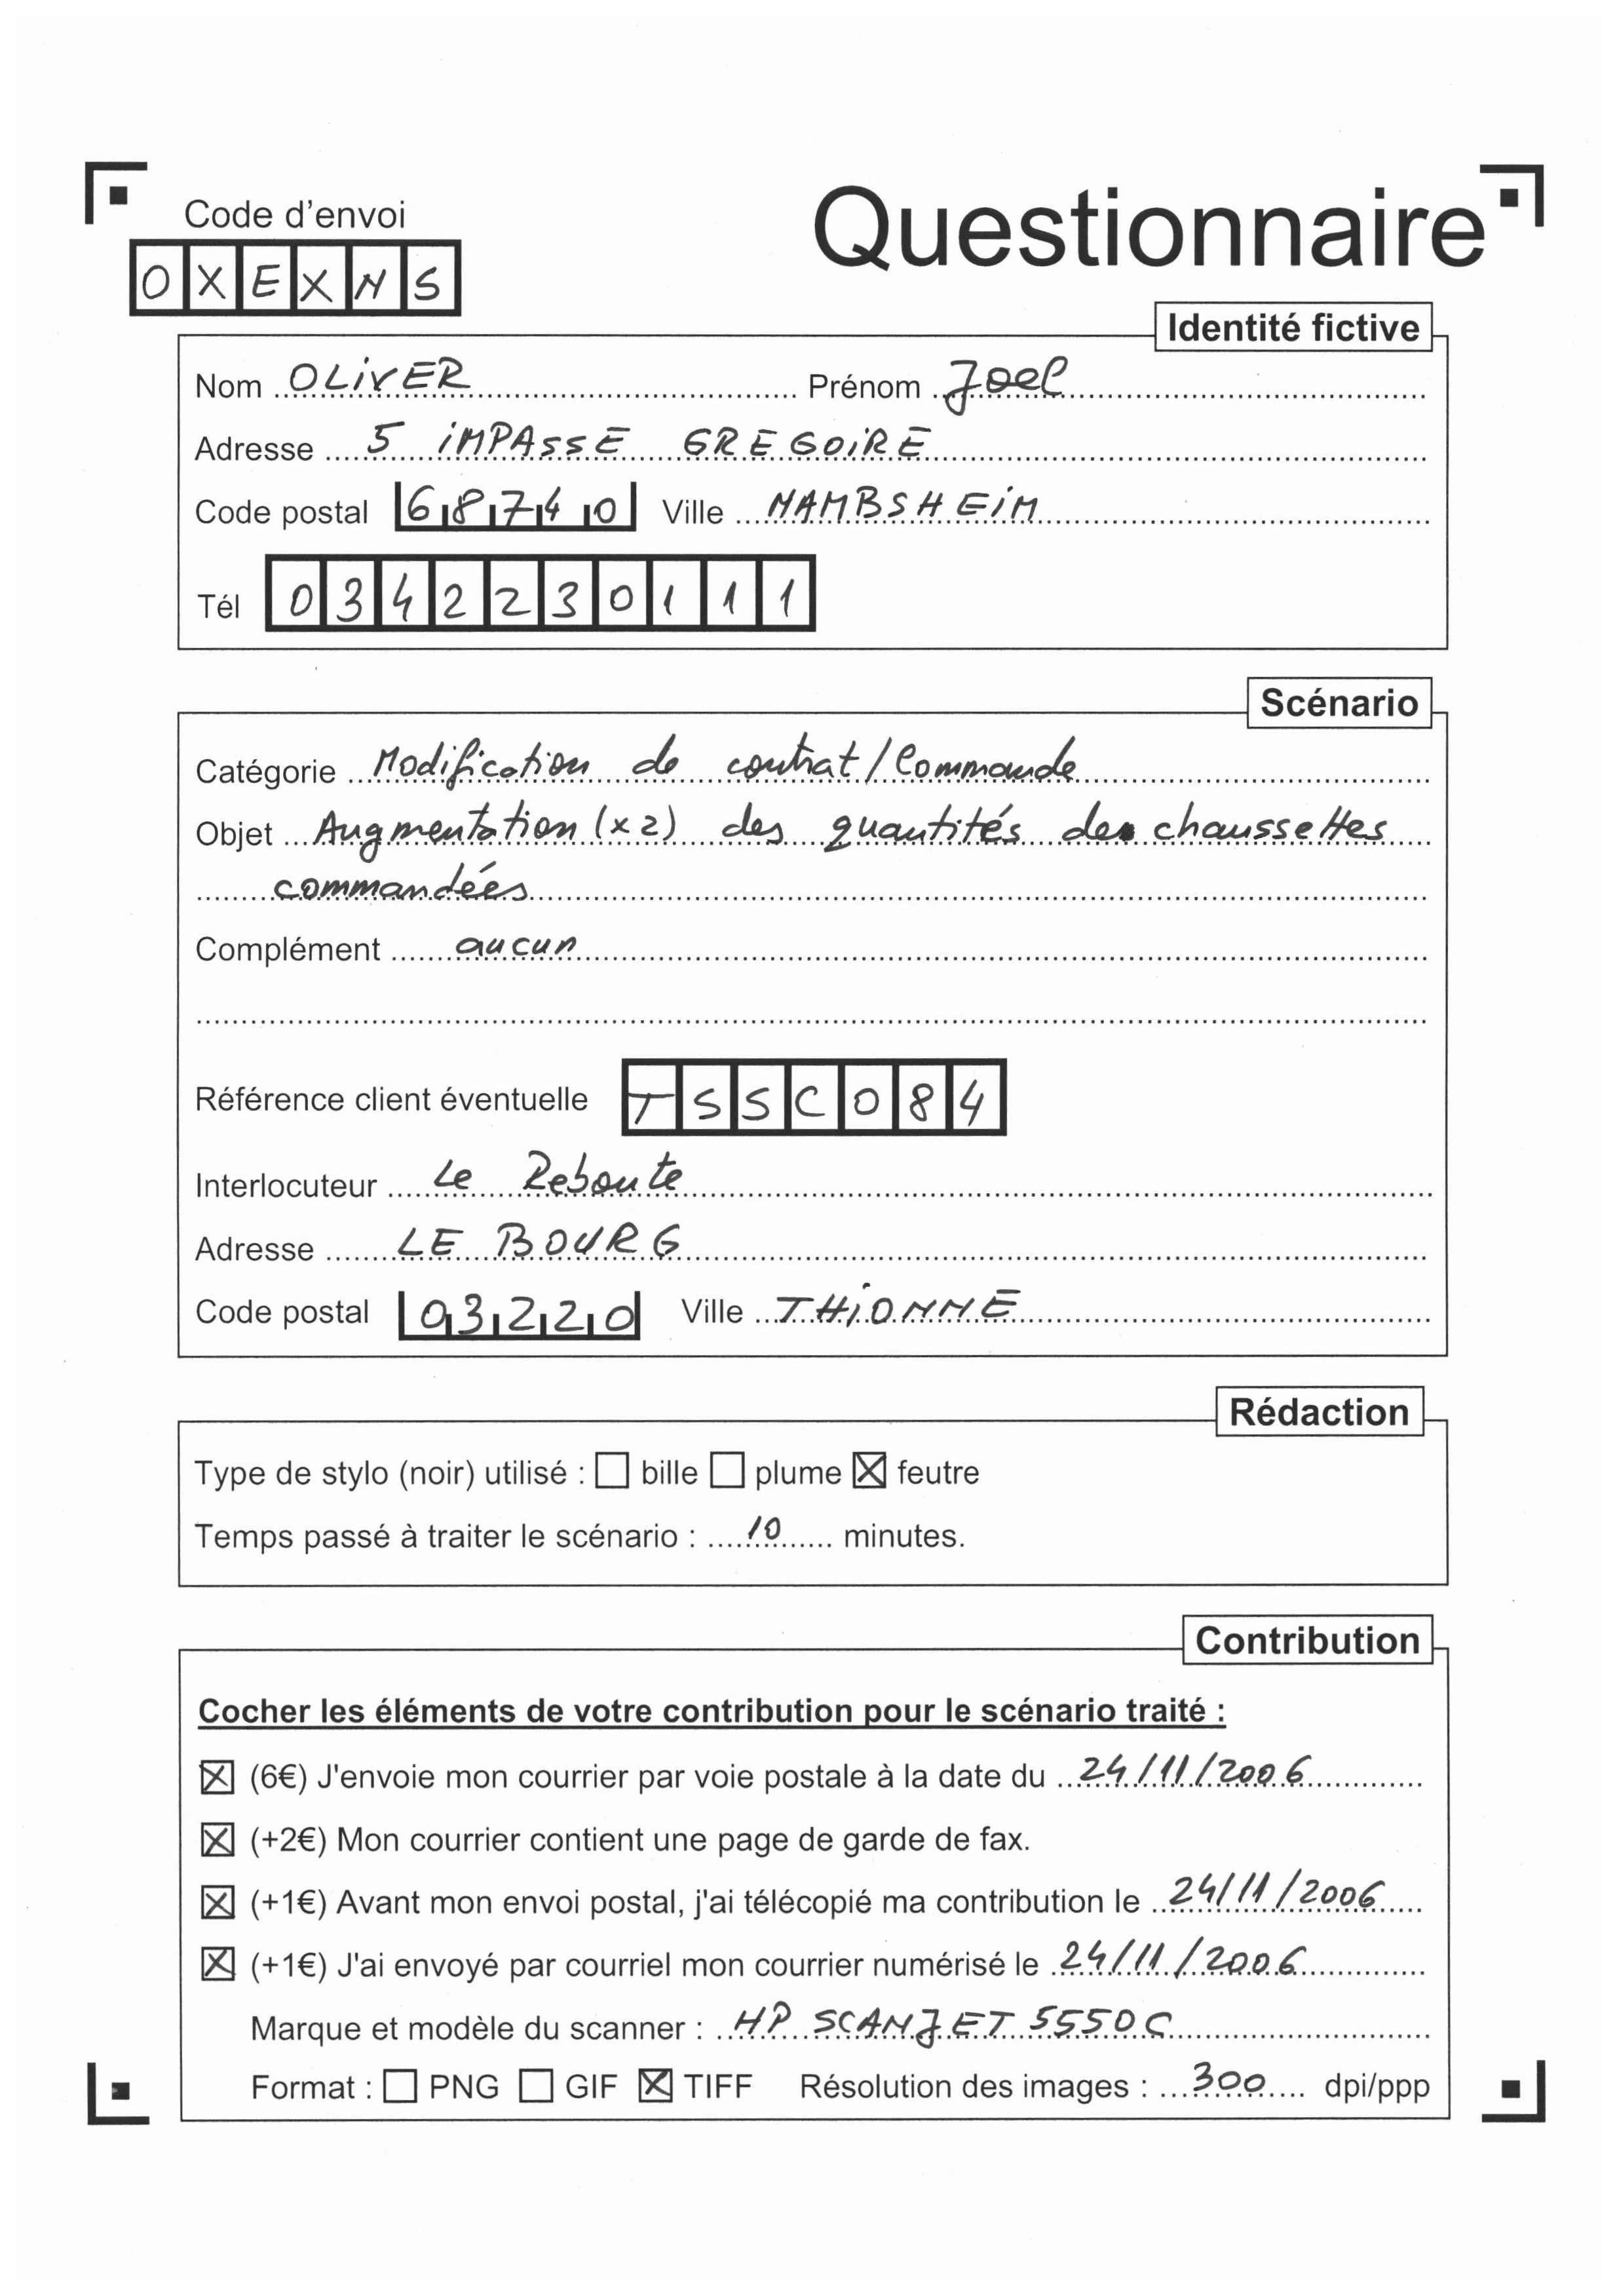 Code d'envoi
Questionnaire
OXEXNS
Identité fictive
Nom OLIVER Prénom Joel
Adresse 5 IMPASSE GREGOIRE
Code postal 68740 Ville NAMBSHEIM
Tél 0342230111
Scénario
Catégorie Modification de contrat/Commande
Objet Augmentation (x2) des quantités des chaussettes
commandées
Complément aucun
Référence client éventuelle TSSC084
Interlocuteur Le Reboute
Adresse LE BOURG
Code postal 03220 Ville THIONNE
Rédaction
Type de stylo (noir) utilisé : ☐ bille ☐ plume ☒ feutre
Temps passé à traiter le scénario : 10 minutes.
Contribution
Cocher les éléments de votre contribution pour le scénario traité :
☒ (6€) J'envoie mon courrier par voie postale à la date du 24/11/2006
☒ (+2€) Mon courrier contient une page de garde de fax.
☒ (+1€) Avant mon envoi postal, j'ai télécopié ma contribution le 24/11/2006
☒ (+1€) J'ai envoyé par courriel mon courrier numérisé le 24/11/2006
Marque et modèle du scanner : HP SCANJET 5550C
Format : ☐ PNG ☐ GIF ☒ TIFF Résolution des images : 300 dpi/ppp